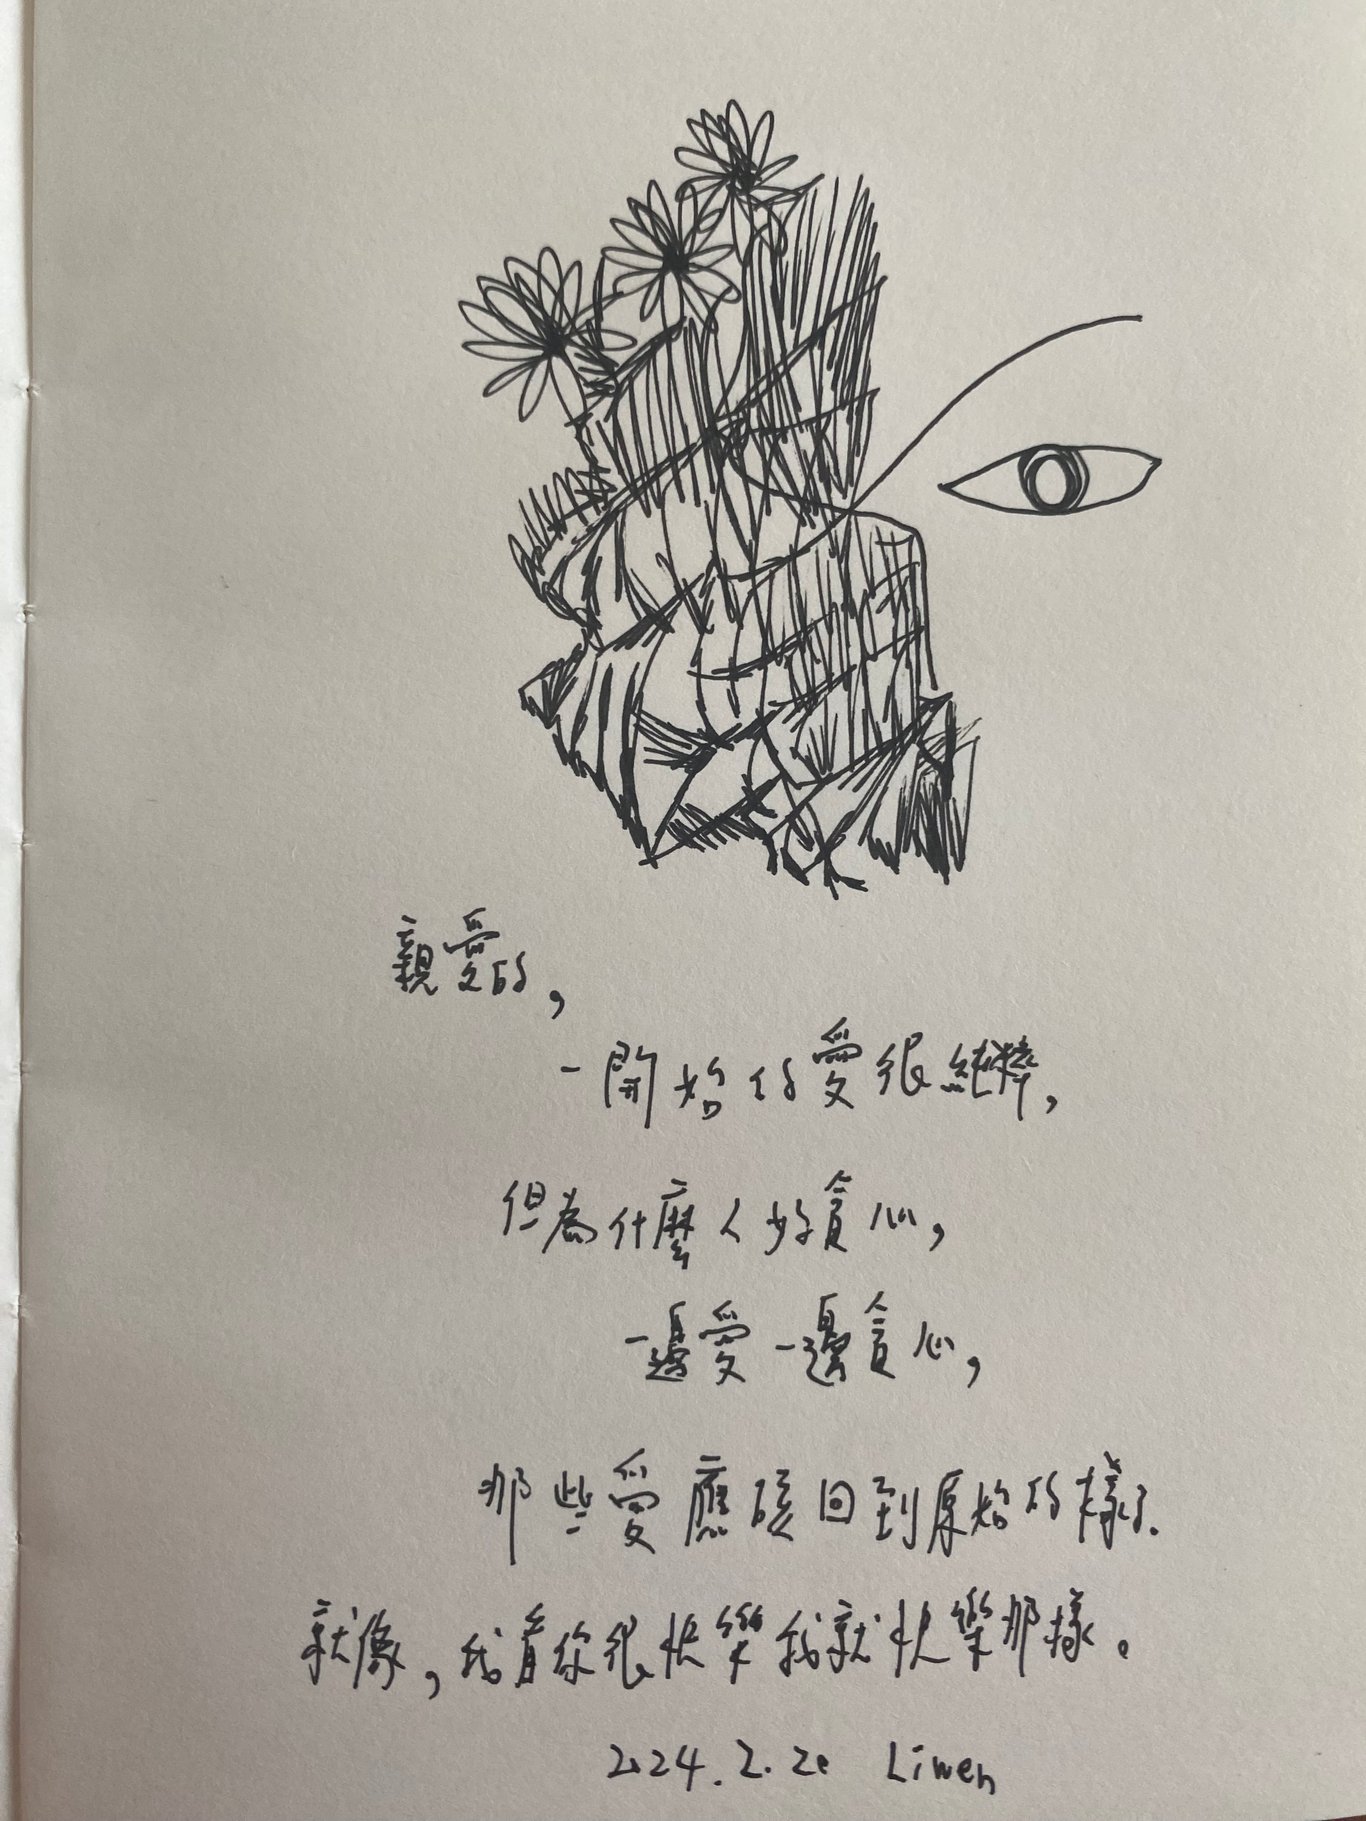 親愛的，
一開始的愛很純粹，
但為什麼人好貪心，
一邊愛一邊貪心，
那些愛應該回到原始的樣子.
就像，我看你很快樂我就快樂那樣。
2024.2.20 Liwen